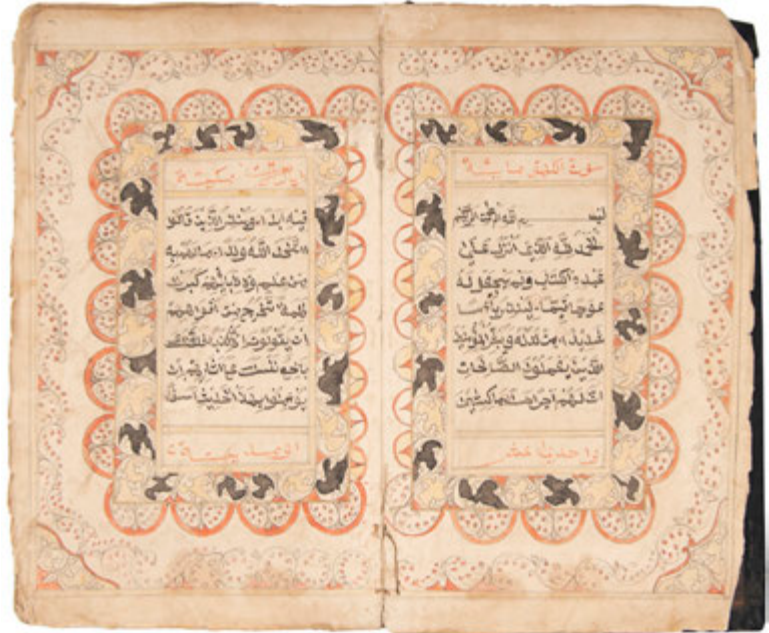 سورة الكهف مائة
بسم الله الرحمن الرحيم
الحمد لله الذي انزل على
عبده الكتاب ولم يجعل له
عوجا قيما لينذر باسا
شديدا من لدنه ويبشر المؤمنين
الذين يعملون الصالحات
ان لهم اجرا حسنا ماكثين
عشر
مكية
فيه ابدا وينذر الذين قالوا
اتخذ الله ولدا ما لهم به
من علم ولا لابائهم كبرت
كلمة تخرج من افواههم
ان يقولون الا كذبا فلعلك
باخع نفسك على اثارهم ان لم
يؤمنوا بهذا الحديث اسفا